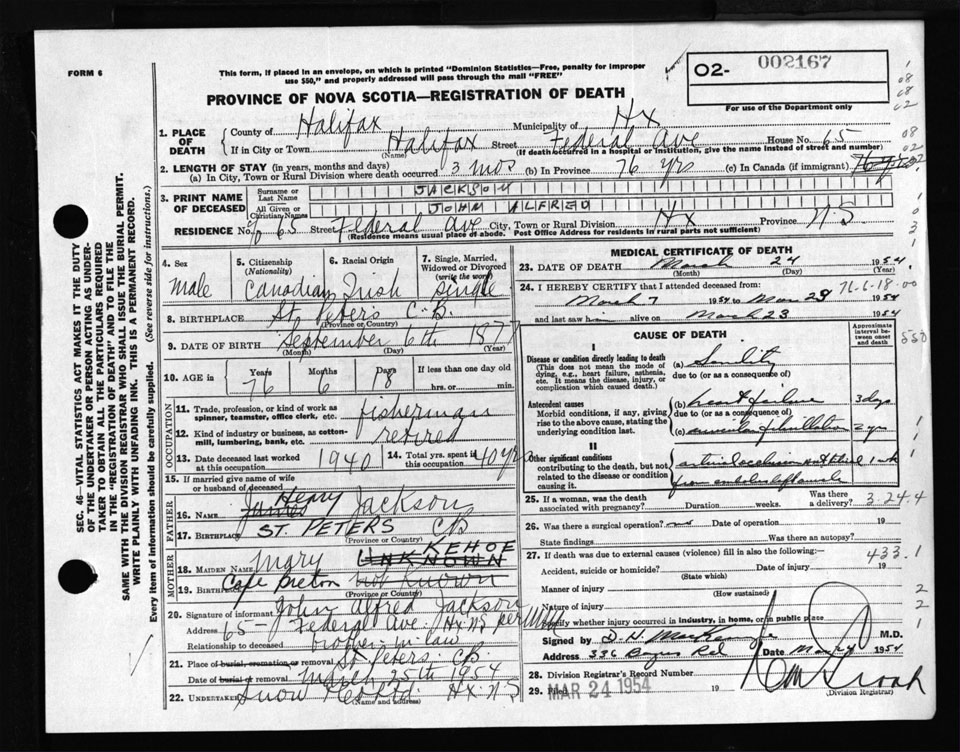 FORM 6
This form, if placed in an envelope, on which is printed "Dominion Statistics—Free, penalty for improper
use $50," and properly addressed will pass through the mail "FREE"
02- 002167
For use of the Department only
PROVINCE OF NOVA SCOTIA—REGISTRATION OF DEATH
1. PLACE OF DEATH
County of Halifax Municipality of Hx
If in City or Town Halifax Street Federal Ave House No. 65
(Name) (If death occurred in a hospital or institution, give the name instead of street and number)
2. LENGTH OF STAY (in years, months and days)
(a) In City, Town or Rural Division where death occurred 3 mos (b) In Province 76 yrs (c) In Canada (if immigrant)
3. PRINT NAME OF DECEASED
Surname or Last Name JACKSON
All Given or Christian Names JOHN ALFRED
RESIDENCE No. % 65 Street Federal Ave City, Town or Rural Division Hx Province N.S
(Residence means usual place of abode. Post Office Address for residents in rural parts not sufficient)
4. Sex male
5. Citizenship (Nationality) Canadian
6. Racial Origin Irish
7. Single, Married, Widowed or Divorced (write the word) single
8. BIRTHPLACE St. Peters C.B.
(Province or Country)
9. DATE OF BIRTH September 6th 1877
(Month) (Day) (Year)
10. AGE in Years 76 Months 6 Days 18 If less than one day old hrs. or min.
OCCUPATION
11. Trade, profession, or kind of work as spinner, teamster, office clerk, etc. fisherman
12. Kind of industry or business, as cotton-mill, lumbering, bank, etc. retired
13. Date deceased last worked at this occupation 1940
14. Total yrs. spent in this occupation 40 yrs
15. If married give name of wife or husband of deceased
FATHER
16. Name James Henry Jackson
17. Birthplace ST. PETERS CB
(Province or Country)
MOTHER
18. MAIDEN NAME Mary UNKNOWN KEHOE
19. BIRTHPLACE Cape Breton not known
(Province or Country)
20. Signature of informant John Alfred Jackson
Address 65 - Federal Ave. Hx. N.S
Relationship to deceased brother-in-law
21. Place of burial, cremation, or removal St. Peters. C.B.
Date of burial or removal March 25th 1954
22. UNDERTAKER Snow & Co Ltd. Hx. N.S
(Name and address)
SEC. 46—VITAL STATISTICS ACT MAKES IT THE DUTY
OF THE UNDERTAKER OR PERSON ACTING AS UNDER-
TAKER TO OBTAIN ALL THE PARTICULARS REQUIRED
IN THE "REGISTRATION OF DEATH" AND TO FILE THE
SAME WITH THE DIVISION REGISTRAR WHO SHALL ISSUE THE BURIAL PERMIT.
WRITE PLAINLY WITH UNFADING INK. THIS IS A PERMANENT RECORD.
Every item of information should be carefully supplied. (See reverse side for instructions.)
MEDICAL CERTIFICATE OF DEATH
23. DATE OF DEATH March 24 1954
(Month) (Day) (Year)
24. I HEREBY CERTIFY that I attended deceased from: 76-6-18-00
March 7 1954 to Mar 23 1954
and last saw him alive on March 23 1954
CAUSE OF DEATH
Approximate interval between onset and death
I
Disease or condition directly leading to death
(This does not mean the mode of dying, e.g., heart failure, asthenia, etc. It means the disease, injury, or complication which caused death.)
(a) Senility
due to (or as a consequence of)
Antecedent causes
Morbid conditions, if any, giving rise to the above cause, stating the underlying condition last.
(b) heart failure 3 days
due to (or as a consequence of)
(c) auricular fibrillation 2 yrs
II
Other significant conditions
contributing to the death, but not related to the disease or condition causing it.
1 wk
from embolus
25. If a woman, was the death associated with pregnancy? Duration weeks. Was there a delivery? 324 4
26. Was there a surgical operation? no Date of operation 19
State findings Was there an autopsy?
27. If death was due to external causes (violence) fill in also the following:— 433.1
Accident, suicide or homicide? Date of injury 19
(State which)
Manner of injury
(How sustained)
Nature of injury
Specify whether injury occurred in industry, in home, or in public place
Signed by D. H. MacKenzie M.D.
Address 336 Date Mar 24 1954
28. Division Registrar's Record Number
29. Filed MAR 24 1954 19
(Division Registrar)